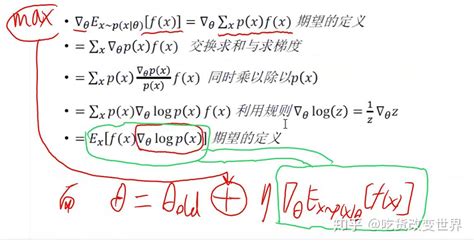 max
• ∇_θ E_{x~p(x|θ)}[f(x)] = ∇_θ ∑_x p(x)f(x) 期望的定义
• = ∑_x ∇_θ p(x)f(x) 交换求和与求梯度
• = ∑_x p(x) ∇_θ p(x)/p(x) f(x) 同时乘以除以p(x)
• = ∑_x p(x)∇_θ log p(x) f(x) 利用规则∇_θ log(z) = 1/z ∇_θ z
• = E_x[f(x)∇_θ log p(x)] 期望的定义
θ = θ_old ⊕ η ∇_θ E_{x~p(x)θ}[f(x)]
知乎 @吃货改变世界